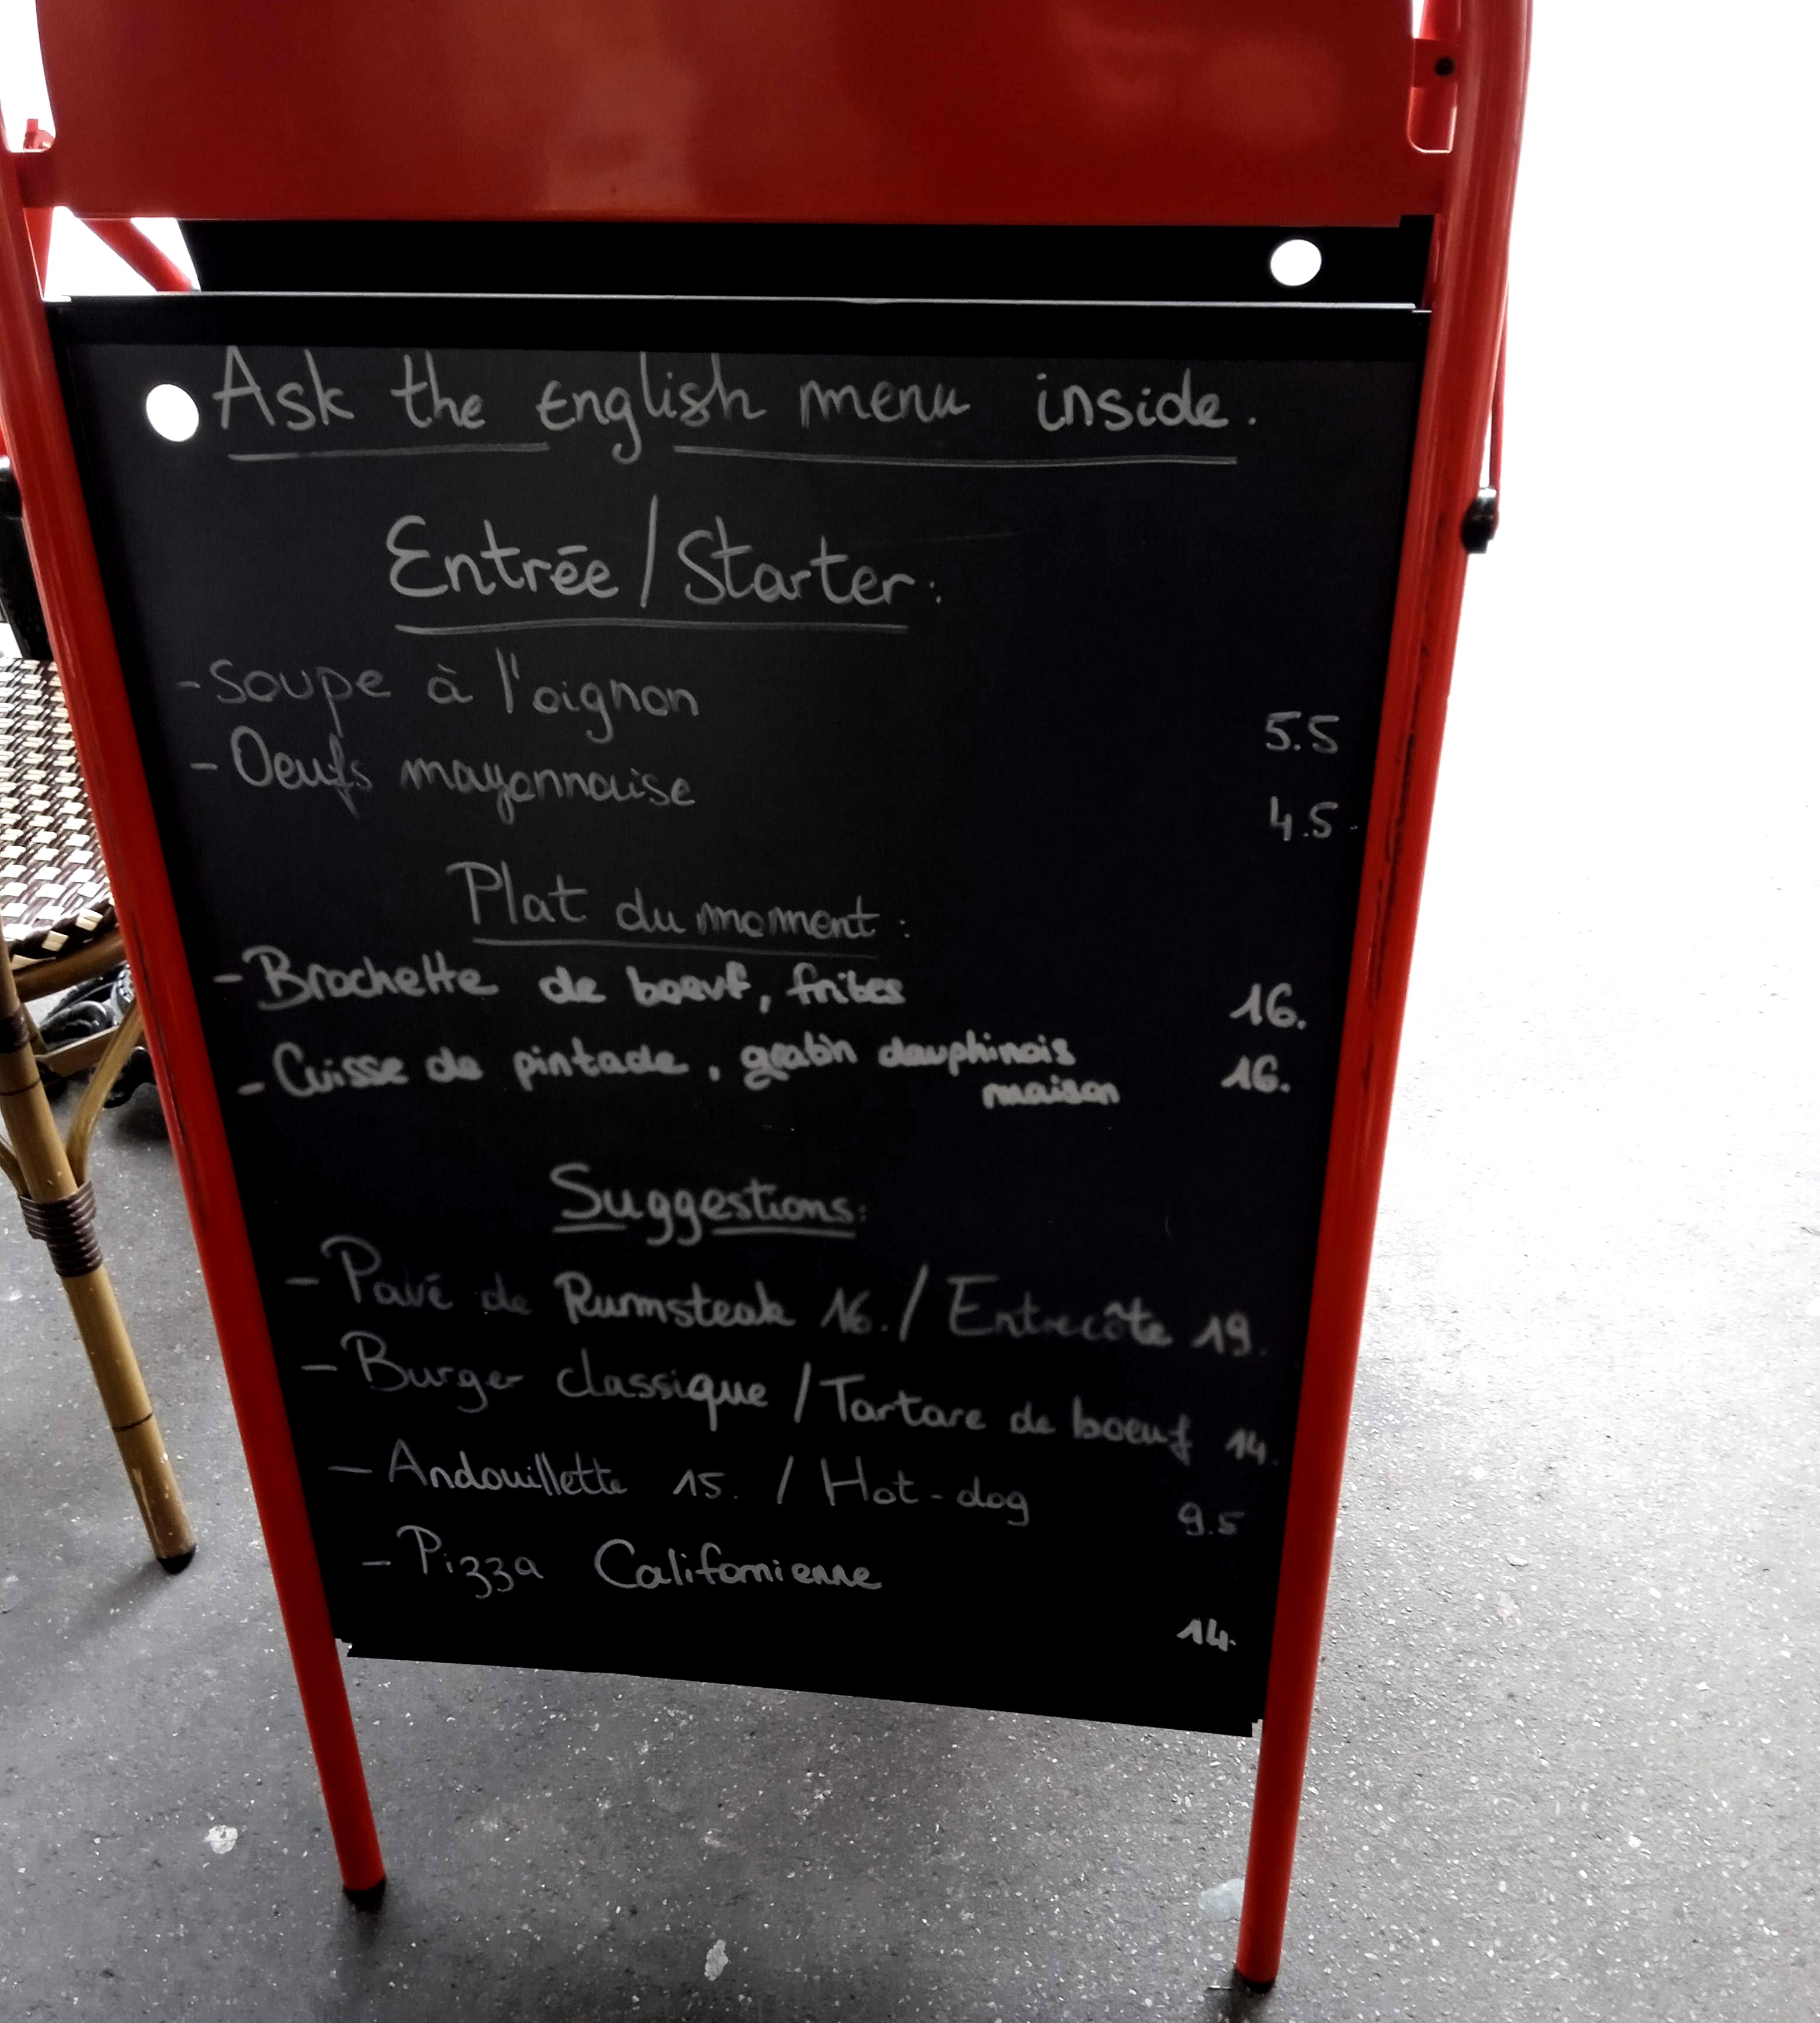 Ask the english menu inside.
Entrée/Starter:
-soupe à l'oignon 5.5
- Oeufs mayonnaise 4.5
Plat du moment:
-Brochette de boeuf, frites 16.
- Cuisse de pintade, gratin dauphinois 16.
maison
Suggestions:
- Pavé de Rumsteak 16. / Entrecôte 19.
- Burger classique / Tartare de boeuf 14.
- Andouillette 15. / Hot-dog 9.5
- Pizza Californienne 14.